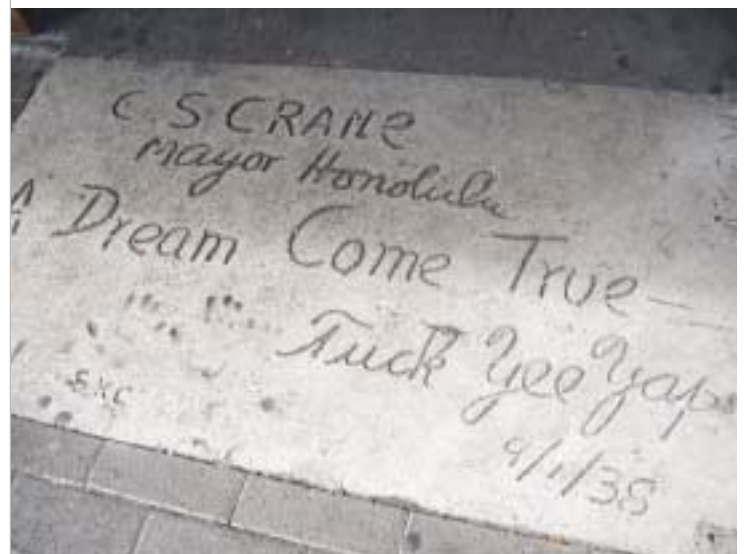 C. S. CRANE
Mayor Honolulu
A Dream Come True—
Tuck Yee Yap
9/1/38